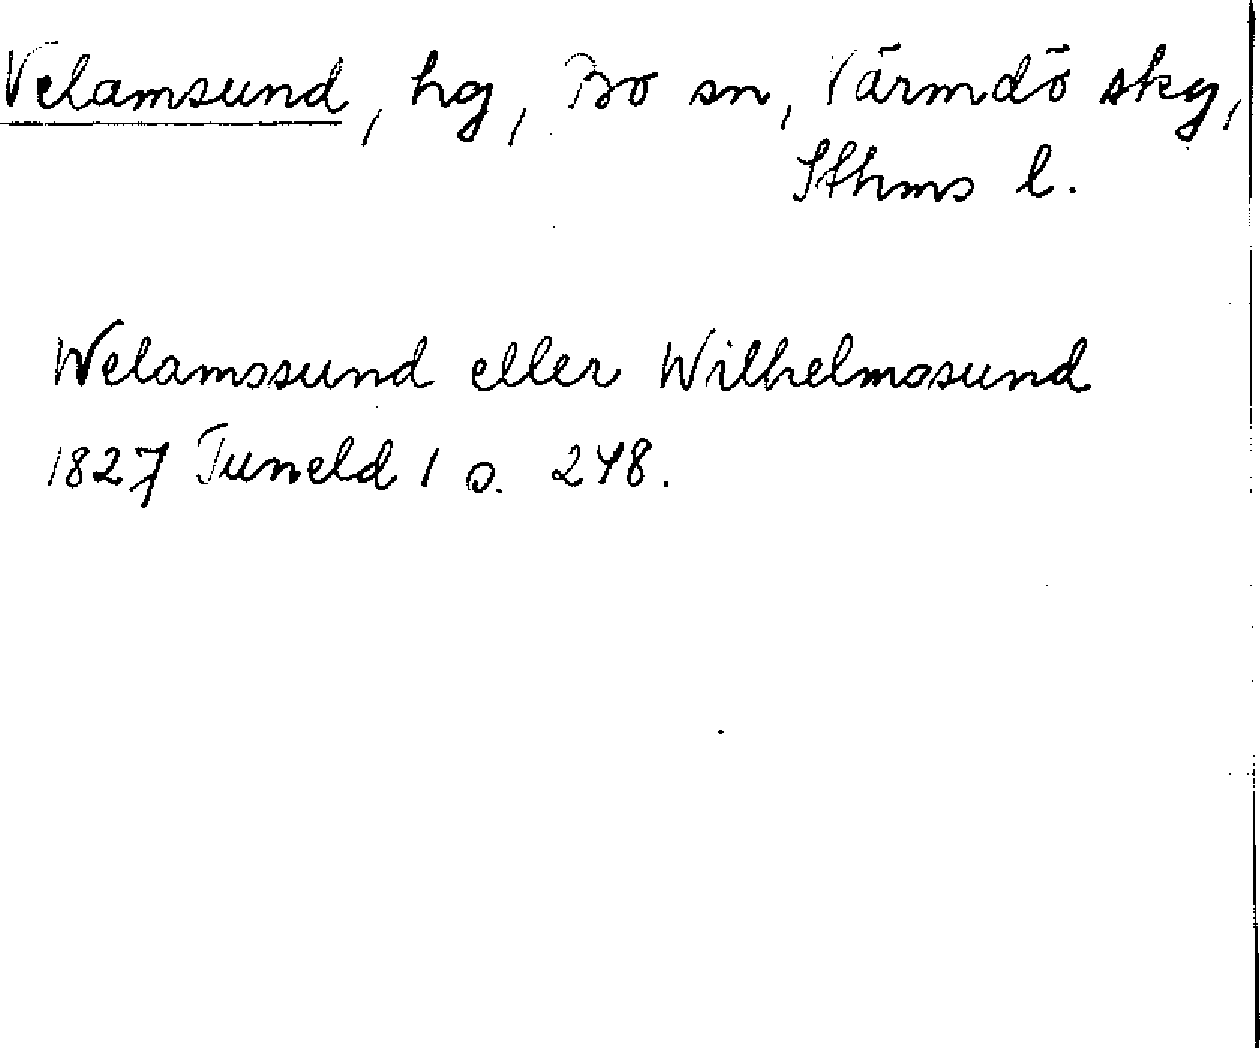 Velamsund, hg, Bo sn, Värmdö skg,
Sthms l.
Welamssund eller Wilhelmssund
1827 Tuneld 1 s. 248.